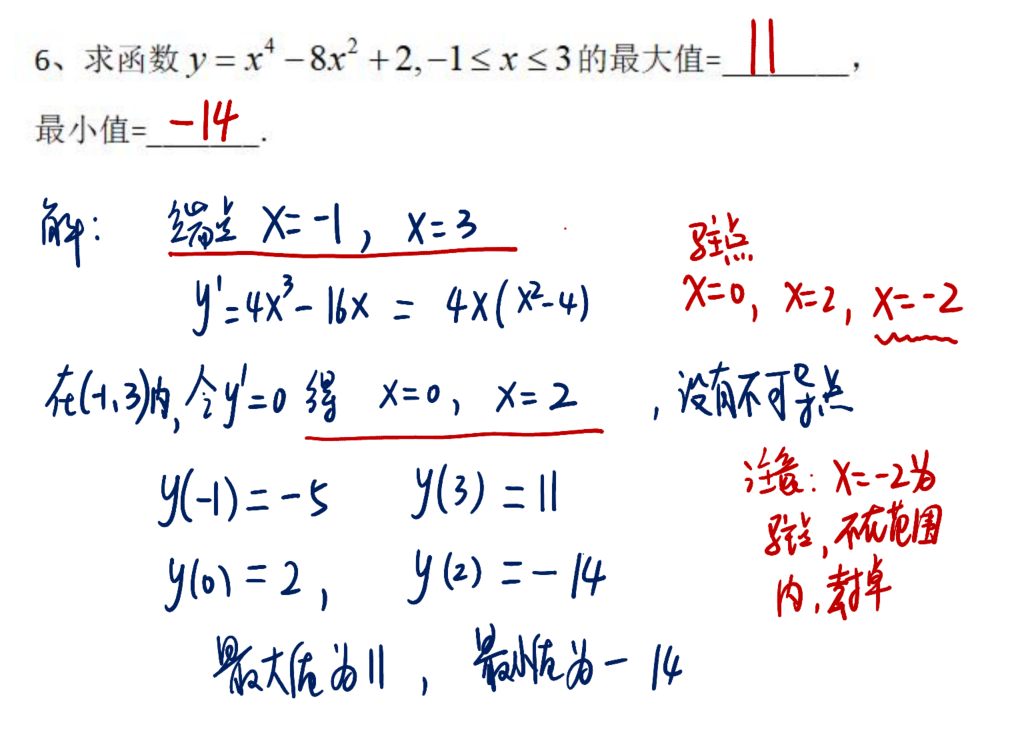 6、求函数 y = x⁴ − 8x² + 2, −1 ≤ x ≤ 3 的最大值=11，
最小值=−14.
解： 端点 x=-1, x=3
y'=4x³-16x = 4x(x²-4)
驻点
x=0, x=2, x=-2
在(-1,3)内,令y'=0得 x=0, x=2 ,没有不可导点
y(-1)=-5 y(3)=11
y(0)=2, y(2)=-14
注意: x=-2为
驻点,不在范围
内,
最大值为11, 最小值为-14